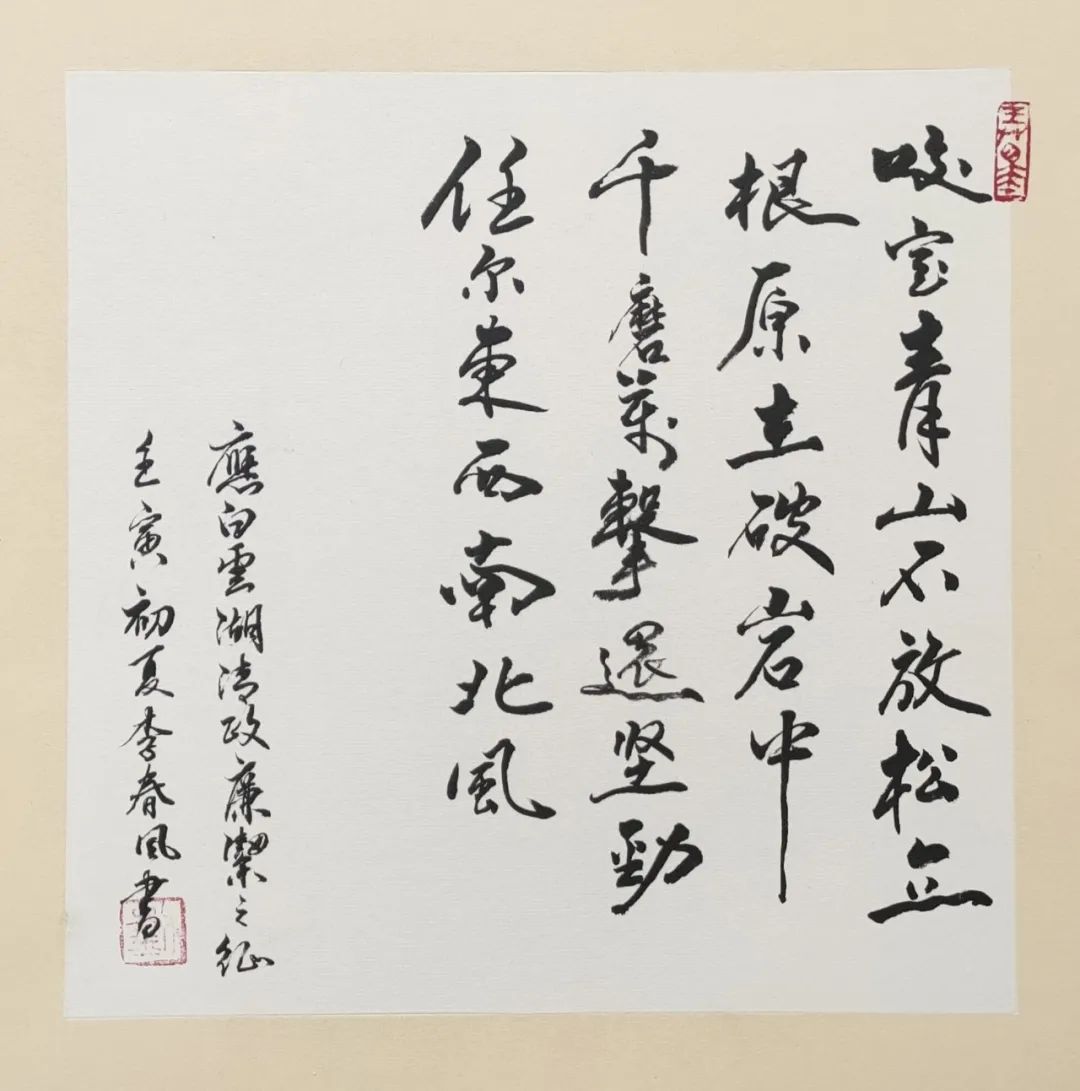 咬定青山不放松立
根原在破岩中
千磨萬擊還坚勁
任尔東西南北風
應白雲湖清政廉潔之征
壬寅初夏李春風書